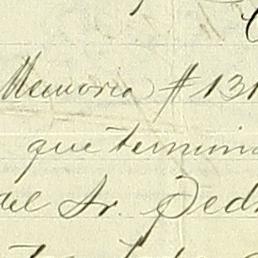 Memoria # 131
que termin
del Sr. Ped